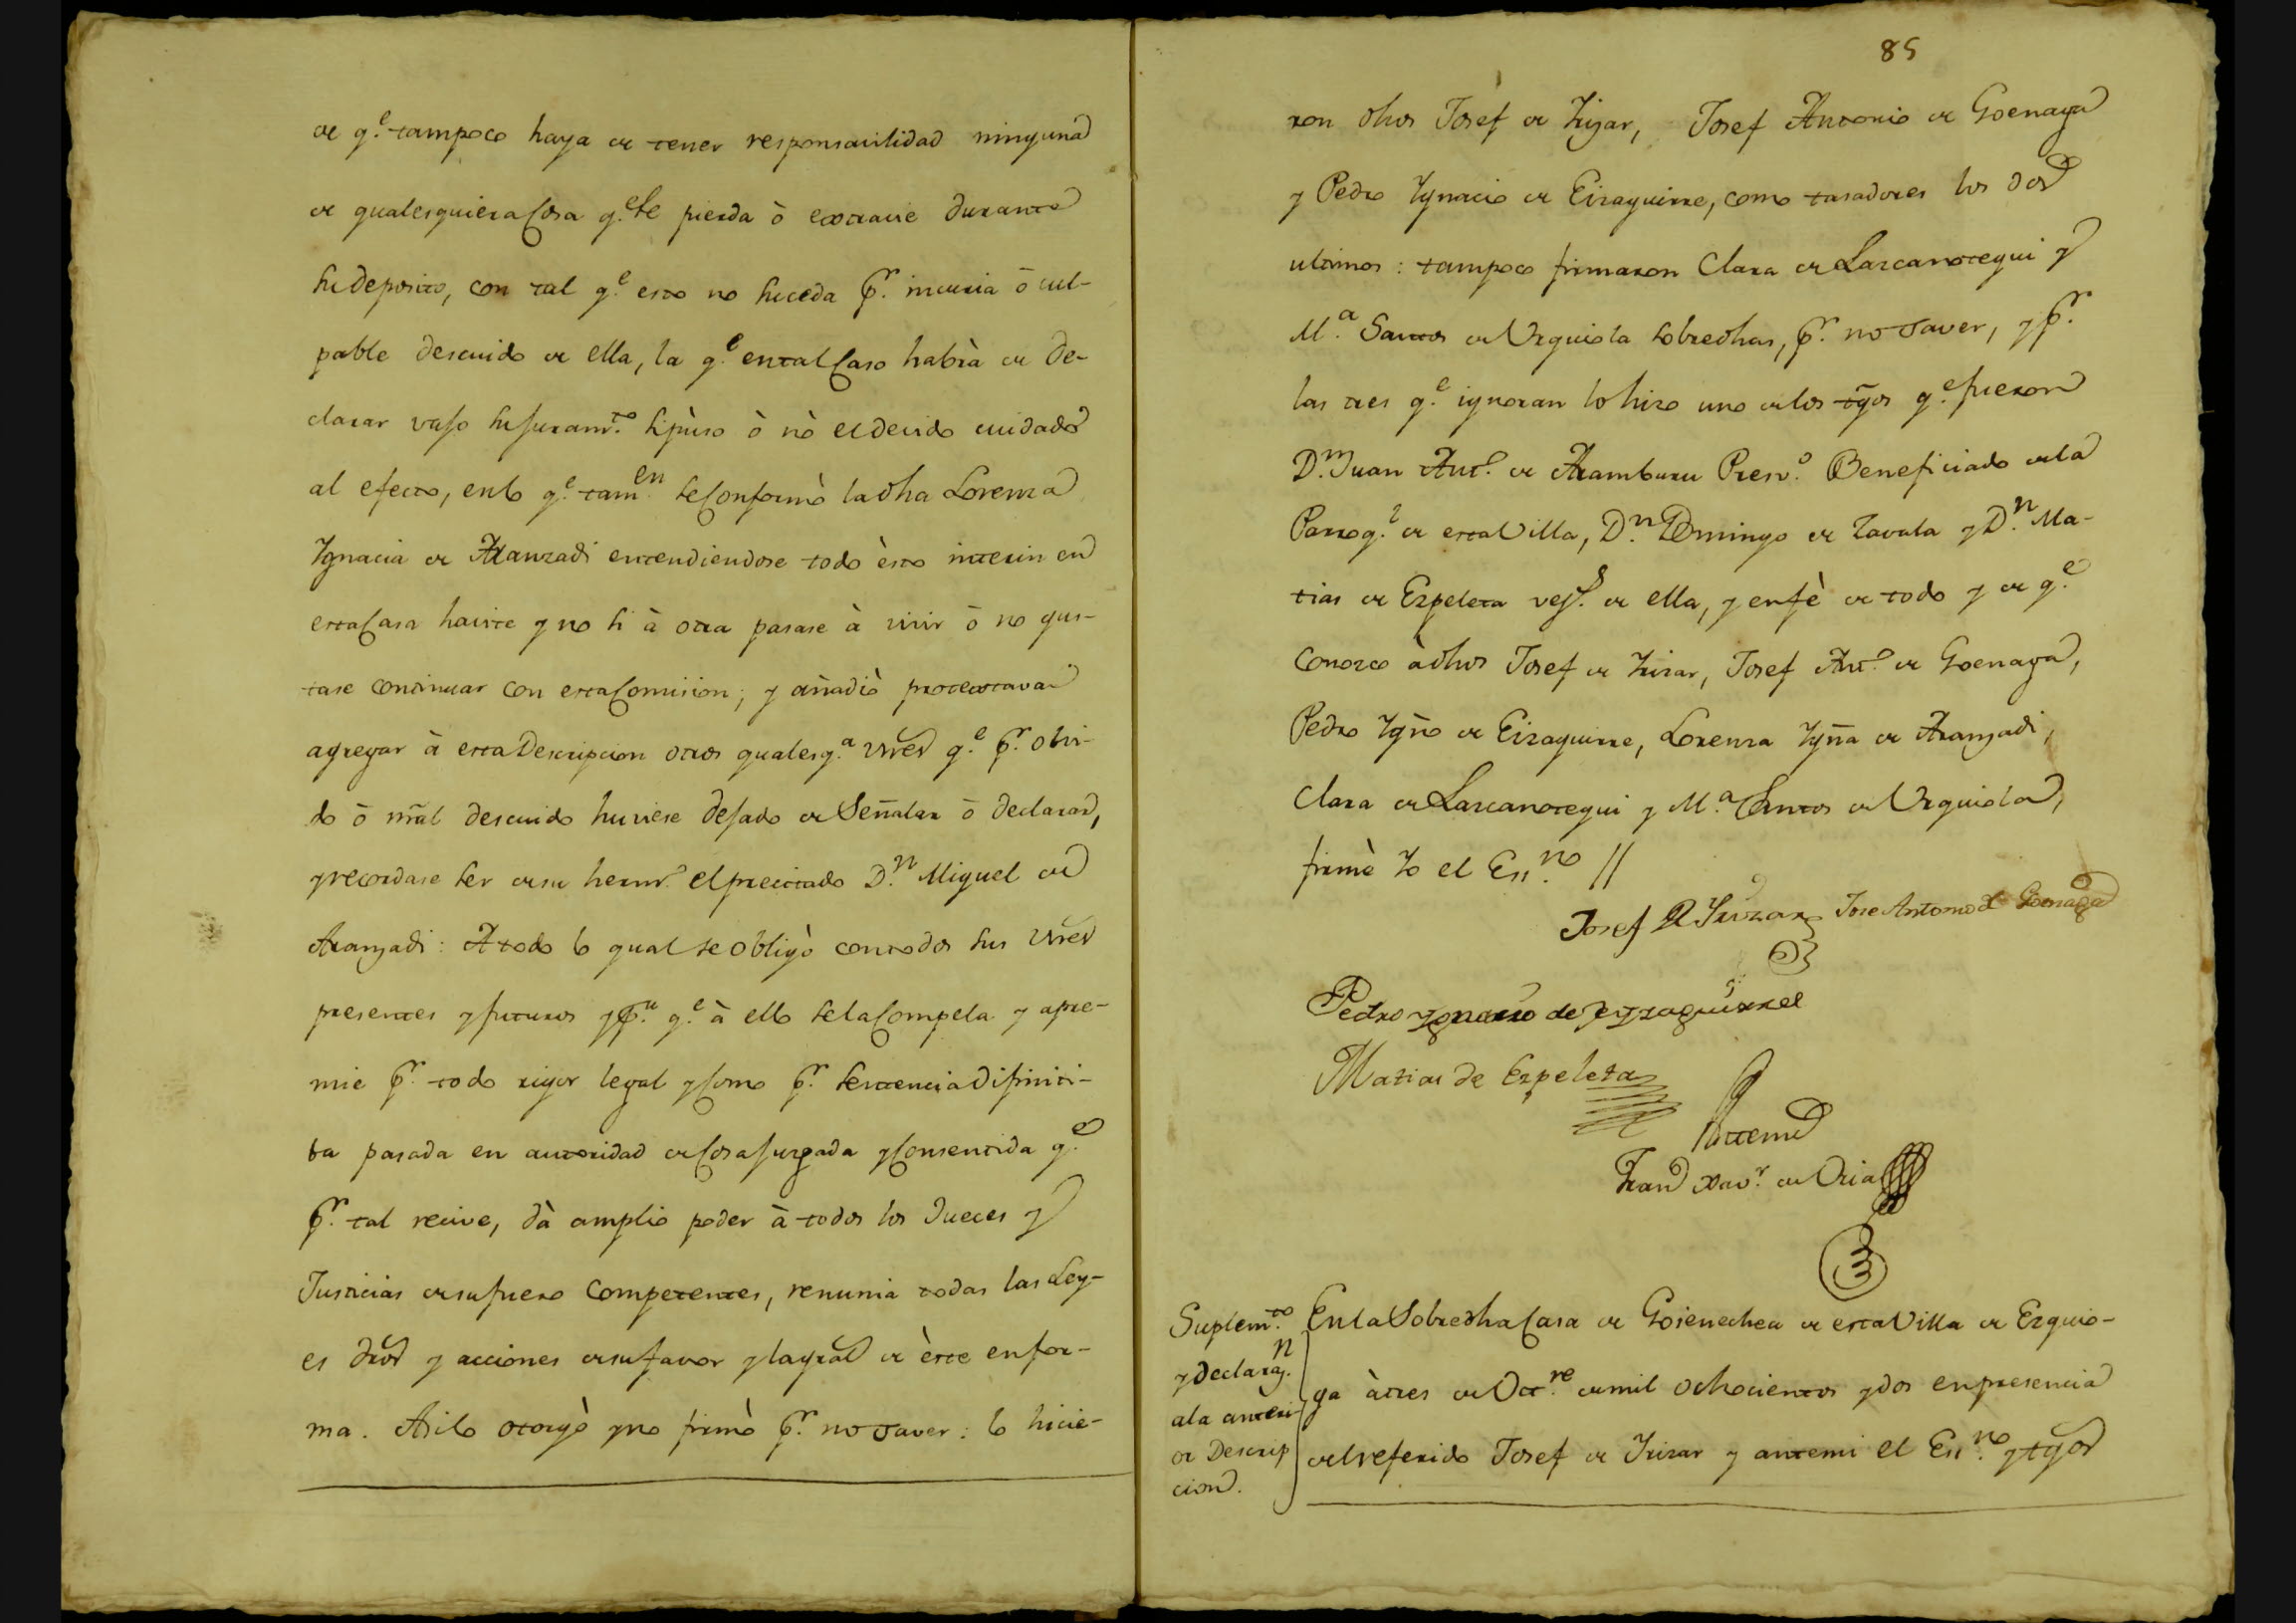 de q.e tampoco haya de tener responsavilidad ninguna
de qualesquiera Cosa q.e se pierda ò extravie durante
su deposito, con tal q.e esto no suceda pr. incuria ò cul-
pable descuido de ella, la q.e en tal Caso habrà de de-
clarar vajo su juram.to si puso ò nò el devido cuidado
al efecto, en lo q.e tam.en se Conformò la dha Lorenza
Ygnacia de Aranzadi entendiendose todo èsto interin en
esta Casa havite y no si à otra pasase à vivir ò no gus-
tase continuar con esta Comision; y añadiò protextava
agregar à esta Descripcion otros qualesq.a vnes q.e pr. olvi-
do ò nràl descuido huviese dejado de Señalar ò declarar,
y recordase ser de su herm.o el precitado D.n Miguel de
Aranzadi: A todo lo qual se obligò con todos sus vnes
presentes y futuros y p.a q.e à ello se la Compela y apre-
mie pr. todo rigor legal y Como pr. sentencia difiniti-
ba pasada en autoridad de Cosa juzgada y Consentida q.e
pr. tal recive, dà amplio poder à todos los Jueces y
Justicias de su fuero Competentes, renuncia todas las Ley-
es dros y acciones de su favor y la gral de èste en for-
ma. Asi lo otorgò y no firmò pr. no saver: lo hicie-
85
ron dhos Josef de Yrizar, Josef Antonio de Goenaga
y Pedro Ygnacio de Eizaguirre, como tasadores los dos
ultimos: tampoco firmaron Clara de Lascanotegui y
M.a Santos de Urquiola sobredhas, pr. no saver, y pr.
las tres q.e ignoran lo hizo uno de los tgos q.e fueron
D.n Juan Ant.o de Aramburu Presv.o Beneficiado de la
Parroq.l de esta Villa, D.n Domingo de Zavala y D.n Ma-
tias de Ezpeleta vez.s de ella, y en fè de todo y de q.e
Conozco à dhos Josef de Yrizar, Josef Ant.o de Goenaga,
Pedro Ygño de Eizaguirre, Lorenza Ygña de Aranzadi,
Clara de Lascanotegui y M.a Santos de Urquiola,
firmè Yo el Ess.no //
Josef de Yrizar Jose Antonio de Goenaga
Pedro ygnacio de eyzaguirre
Matias de Ezpeleta
Antemi
Fran.co Xav.r de Oria
Suplem.to
y declaraz.n
a la anteri-
or Descrip
cion.
En la Sobredha Casa de Goienechea de esta Villa de Ezquio-
ga à tres de Oct.re de mil ochocientos y dos en presencia
del referido Josef de Yrizar y antemi el Ess.no y tgos